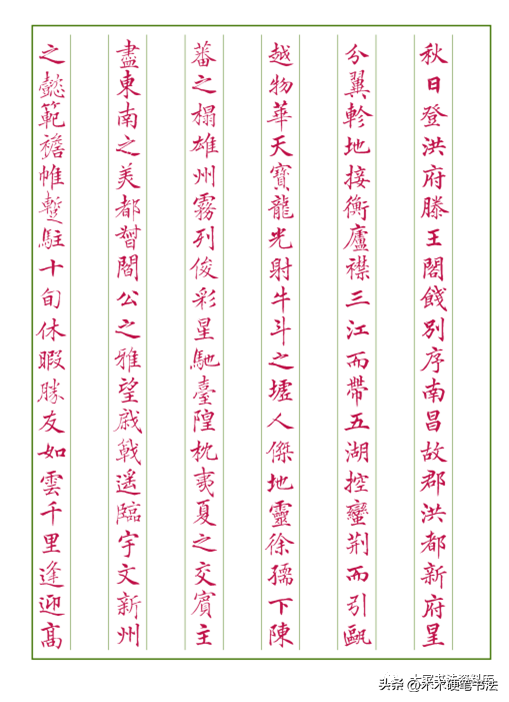 秋日登洪府滕王閣餞別序南昌故郡洪都新府星
分翼軫地接衡廬襟三江而帶五湖控蠻荆而引甌
越物華天寶龍光射牛斗之墟人傑地靈徐孺下陳
蕃之榻雄州霧列俊彩星馳臺隍枕夷夏之交賓主
盡東南之美都督閻公之雅望戟遥臨宇文新州
之懿範襜帷暫駐十旬休暇勝友如雲千里逢迎髙
头条 @硬笔书法